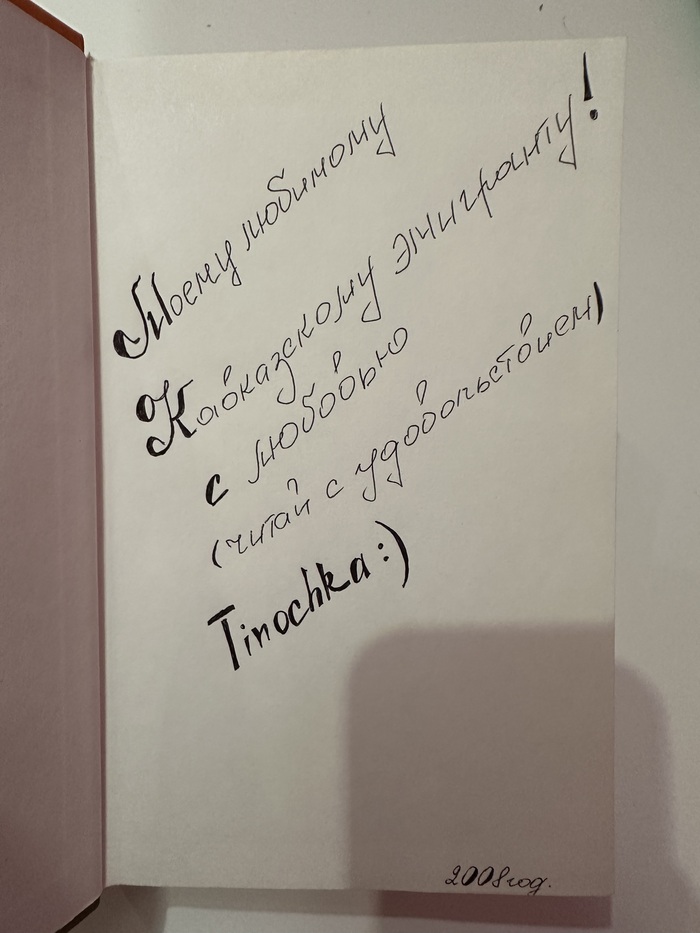 Моему любимому
Кавказскому эмигранту!
с любовью
(читай с удовольствием)
Tinochka:)
2008год.